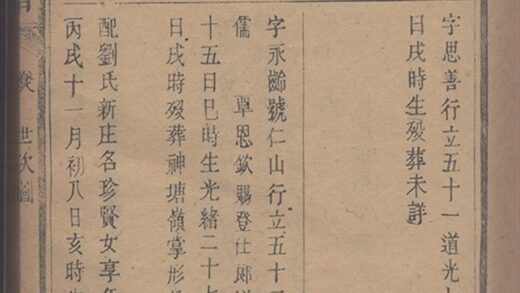 字思善行立五十一道光
日戌時生歿葬未詳
字永齡號仁山行立五十
儒 覃恩欽賜登仕郎
十五日巳時生光緒二十七
日戌時歿葬神塘嶺掌形
配劉氏新庄名珍賢女享年
丙戌十一月初八日亥時
世次圖